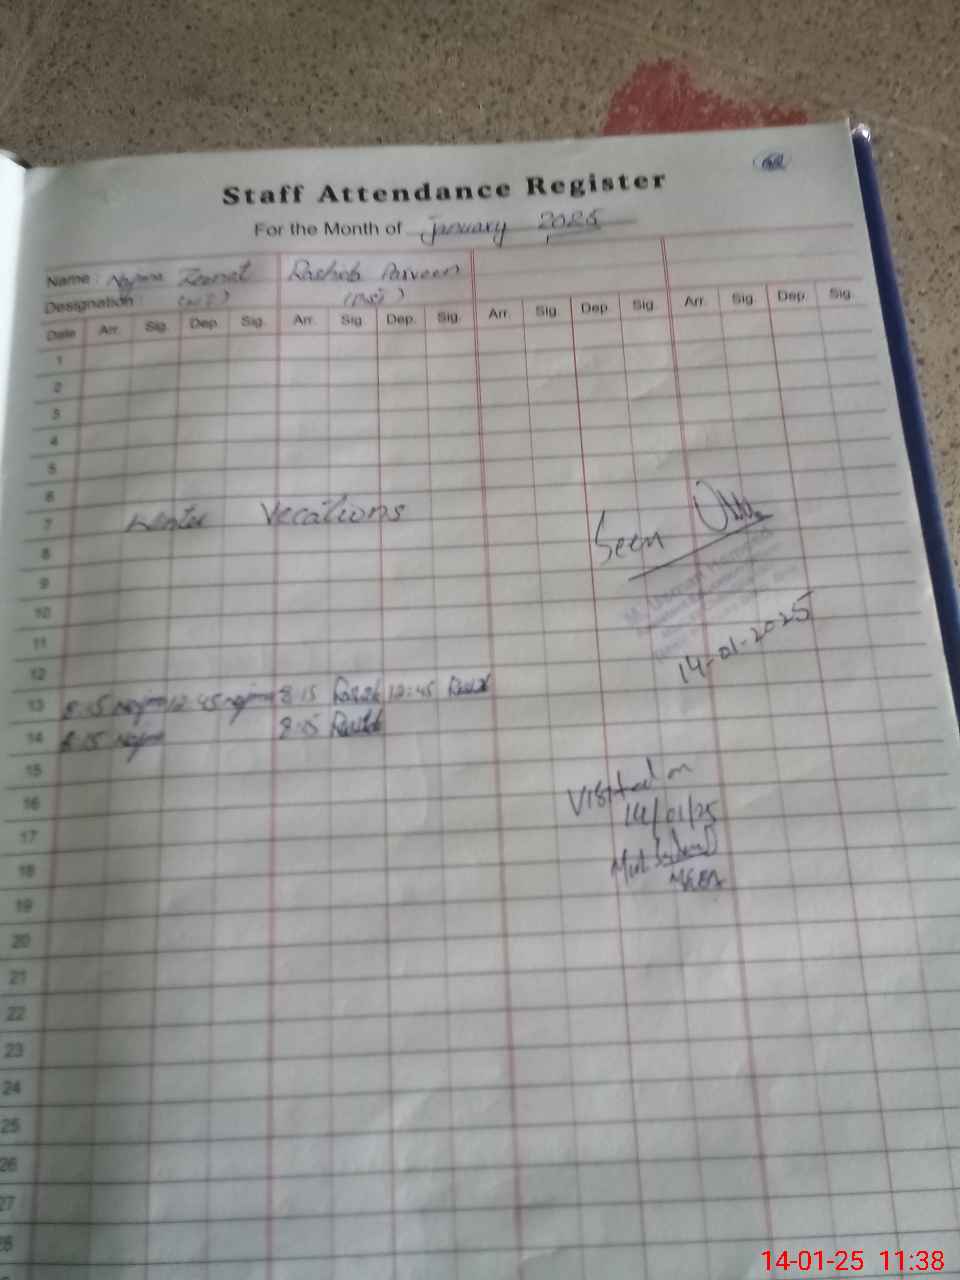 Staff Attendance Register
For the Month of january 2025
Name : Najma Zeenat Rashida Parveen
Designation :
Date Arr. Sig. Dep. Sig. Arr. Sig. Dep. Sig. Arr. Sig. Dep. Sig. Arr. Sig. Dep. Sig.
1
2
3
4
5
6
7 Winter Vecations
Seen
8
9
10
11
14-01-2025
12
13 8:15 Najma 12:45 Najma 8:15 12:45
14 8:15 Najma 8:15
15
Visited on
16
14/01/25
17
18
19
20
21
22
23
24
25
26
27
28
14-01-25 11:38